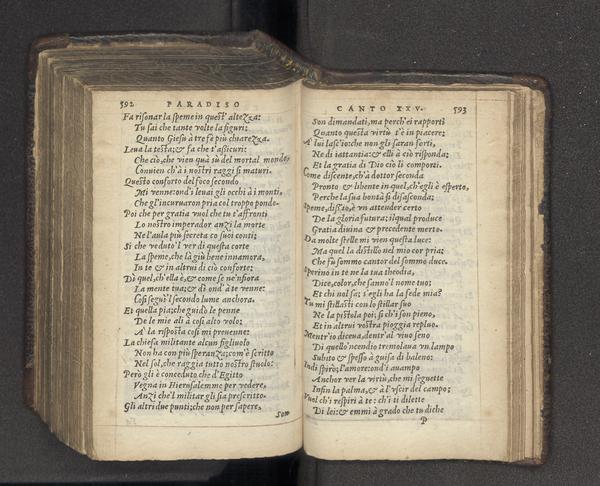 592 PARADISO
Fa risonar la speme in quest' altezza:
Tu sai che tante volte la figuri;
Quanto Giesù à tre fe più chiarezza.
Leua la testa; & fa che t'assicuri:
Che ciò, che vien quà sù del mortal mondo,
Conuien ch'à i nostri raggi si maturi.
Questo conforto del foco secondo
Mi venne: ond'i leuai gli occhi à i monti,
Che gl'incuruaron pria col troppo pondo.
Poi che per gratia vuol che tu t'affronti
Lo nostro imperador anzi la morte
Ne l'aula più secreta co suoi conti;
Si che veduto'l ver di questa corte
La speme, che là giù bene innamora,
In te & in altrui di ciò conforte;
Di quel, ch'ella è, & come se ne'nfiora
La mente tua; & dì ond'à te venne:
Cosi seguì'l secondo lume anchora.
Et quella pia; che guidò le penne
De le mie ali à così alto volo;
A' la risposta così mi preuenne:
La chiesa militante alcun figliuolo
Non ha con più speranza; com'è scritto
Nel sol, che raggia tutto nostro stuolo:
Però gli è conceduto che d'Egitto
Vegna in Hierusalemme per vedere,
Anzi che'l militar gli sia prescritto.
Gli altri due punti; che non per sapere,
Son
CANTO XXV. 593
Son dimandati, ma perch'ei rapporti
Quanto questa virtù t'è in piacere;
A' lui lasc'io: che non gli saran forti,
Ne di iattantia: & elli à ciò risponda;
Et la gratia di Dio ciò li comporti.
Come discente, ch'à dottor seconda
Pronto & libente in quel, ch'egli è esperto,
Perche la sua bontà si disasconda;
Speme, diss'io, è vn attender certo
De la gloria futura; ilqual produce
Gratia diuina & precedente merto.
Da molte stelle mi vien questa luce:
Ma quel la distillò nel mio cor pria;
Che fu sommo cantor del sommo duce.
Sperino in te ne la tua theodia,
Dice, color, che sanno'l nome tuo:
Et chi nol sa; s'egli ha la fede mia?
Tu mi stillasti con lo stillar suo
Ne la pistola poi; si ch'i son pieno,
Et in altrui vostra pioggia repluo.
Mentr'io diceua, dentr'al viuo seno
Di quello'ncendio tremolaua vn lampo
Subito & spesso à guisa di baleno:
Indi spirò; l'amore: ond'i auampo
Anchor ver la virtù, che mi seguette
Infin la palma, & à l'vscir del campo;
Vuol ch'i respiri à te: ch'i ti dilette
Di lei: & emmi à grado che tu diche
P